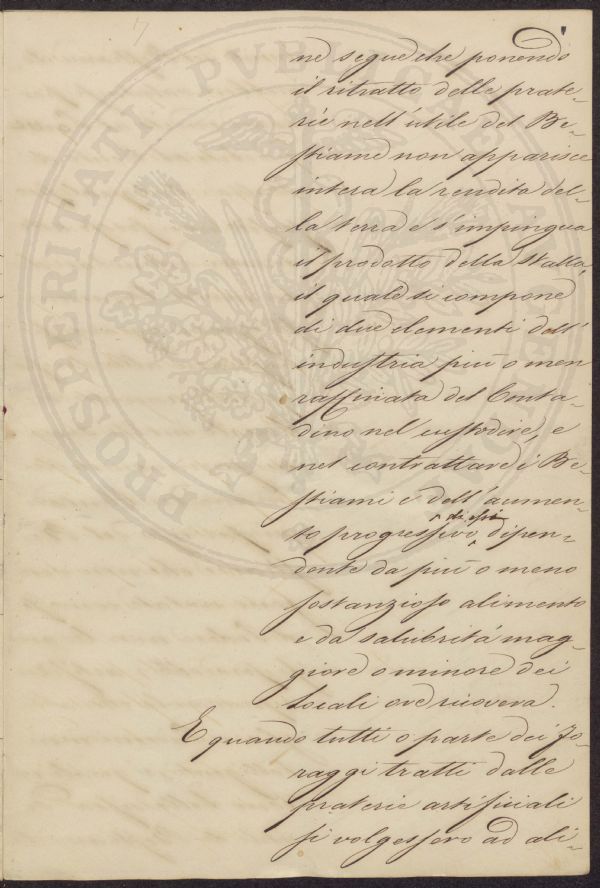 ne segue che ponendo
il ritratto delle prate-
rie nell'utile del Be-
stiame non apparisce
intera la rendita del-
la terra e s'impingua
il prodotto della stalla,
il quale si compone
di due elementi dell'
industria più o men
raffinata del Conta-
dino nel custodire, e
nel contrattare i Be-
stiami e dell'aumen-
di essi
to progressivo dipen-
dente da più o meno
sostanzioso alimento
e da salubrità mag-
giore o minore dei
locali ove ricovera.
E quando tutti o parte dei fo-
raggi tratti dalle
praterie artificiali
si volgessero ad ali-
PROSPERITATI PVBLICAE